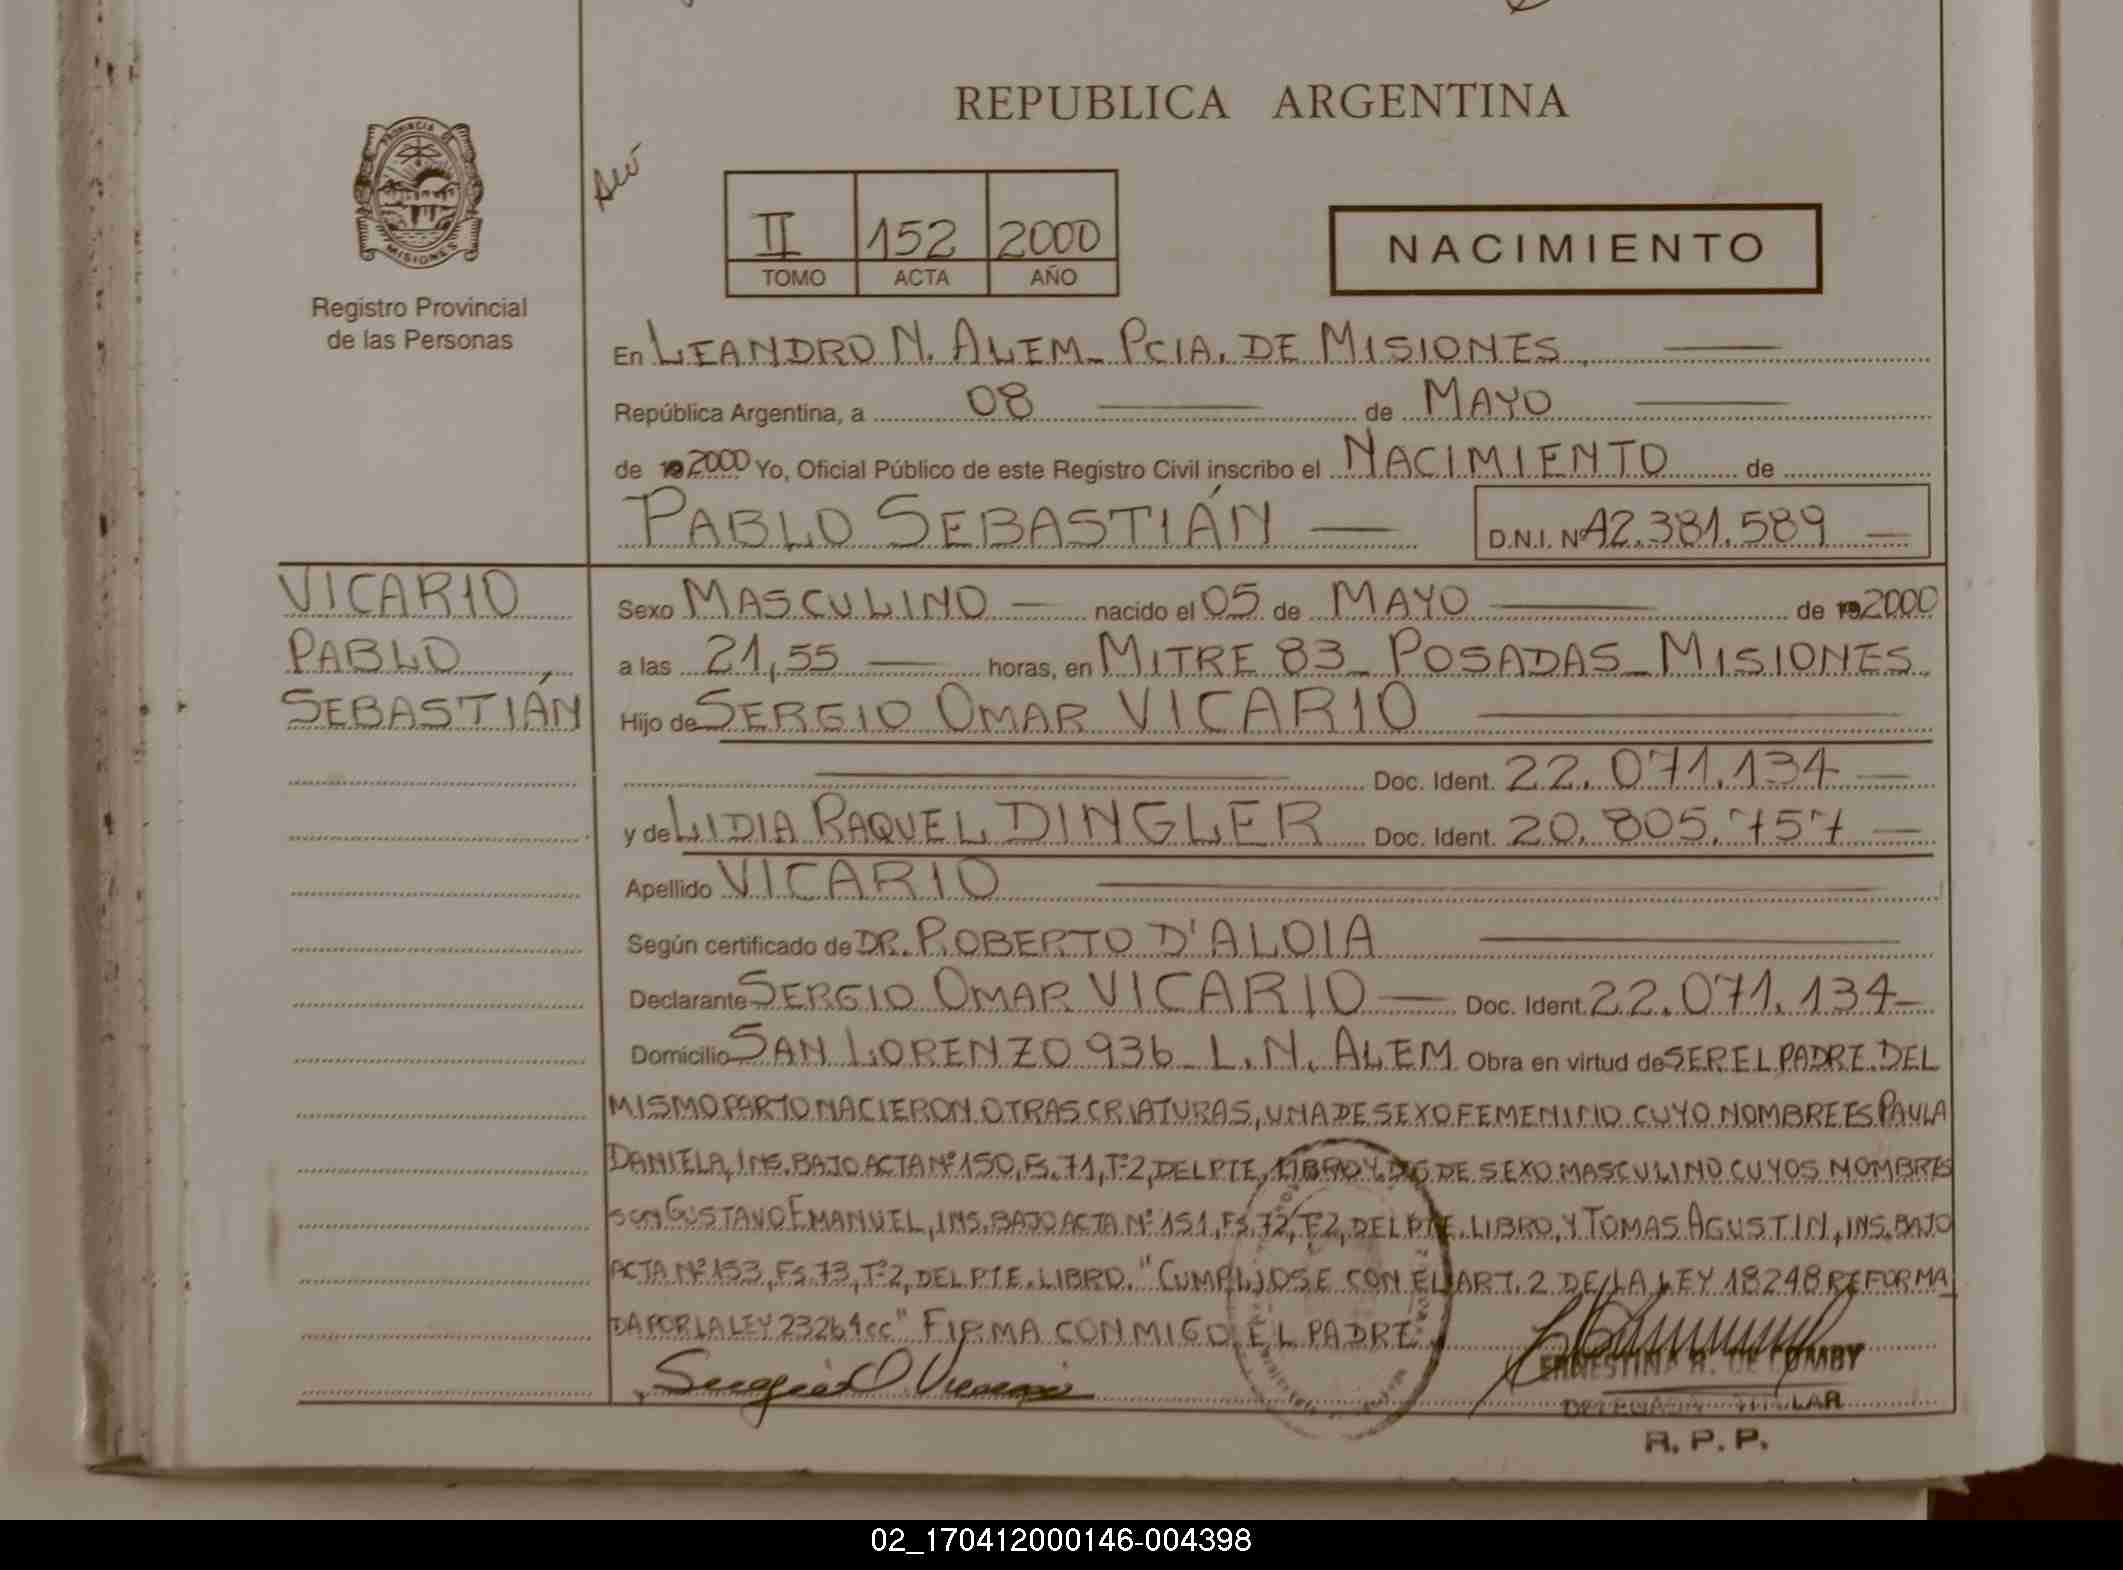 REPUBLICA ARGENTINA
PROVINCIA DE
MISIONES
Registro Provincial
de las Personas
II 152 2000
TOMO ACTA AÑO
NACIMIENTO
En LEANDRO N. ALEM - PCIA. DE MISIONES
República Argentina, a 08 de MAYO
de 2000 Yo, Oficial Público de este Registro Civil inscribo el NACIMIENTO de
PABLO SEBASTIÁN D.N.I. Nº 42.381.589
VICARIO
PABLO
SEBASTIÁN
Sexo MASCULINO nacido el 05 de MAYO de 2000
a las 21,55 horas, en MITRE 83 - POSADAS - MISIONES
Hijo de SERGIO OMAR VICARIO
Doc. Ident. 22.071.134
y de LIDIA RAQUEL DINGLER Doc. Ident. 20.805.757
Apellido VICARIO
Según certificado de DR. ROBERTO D'ALOIA
Declarante SERGIO OMAR VICARIO Doc. Ident. 22.071.134
Domicilio SAN LORENZO 936 - L.N. ALEM Obra en virtud de SER EL PADRE. DEL
MISMO PARTO NACIERON OTRAS CRIATURAS, UNA DE SEXO FEMENINO CUYO NOMBRE ES PAULA
DANIELA, INS. BAJO ACTA Nº 150, FS. 71, Tº 2, DEL PTE. LIBRO Y DOS DE SEXO MASCULINO CUYOS NOMBRES
SON GUSTAVO EMANUEL, INS. BAJO ACTA Nº 151, FS. 72, Tº 2, DEL PTE. LIBRO, Y TOMAS AGUSTIN, INS. BAJO
ACTA Nº 153, FS. 73, Tº 2, DEL PTE. LIBRO. "CUMPLIOSE CON EL ART. 2 DE LA LEY 18248 REFORMA_
DA POR LA LEY 23264 cc" FIRMA CONMIGO EL PADRE
Sergio O. Vicario
ERNESTINA R. DE COMBY
DELEGADA TITULAR
R. P. P.
02_170412000146-004398